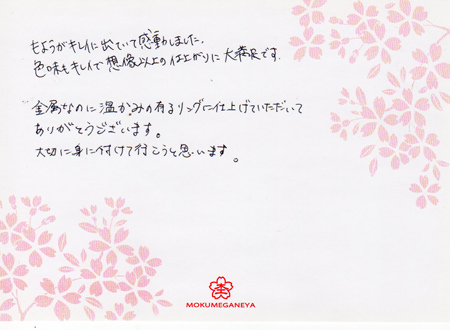 もようがキレイに出ていて感動しました。
色味もキレイで想像以上の仕上がりに大満足です。
金属なのに温かみの有るリングに仕上げていただいて
ありがとうございます。
大切に身に付けて行こうと思います。
MOKUMEGANEYA